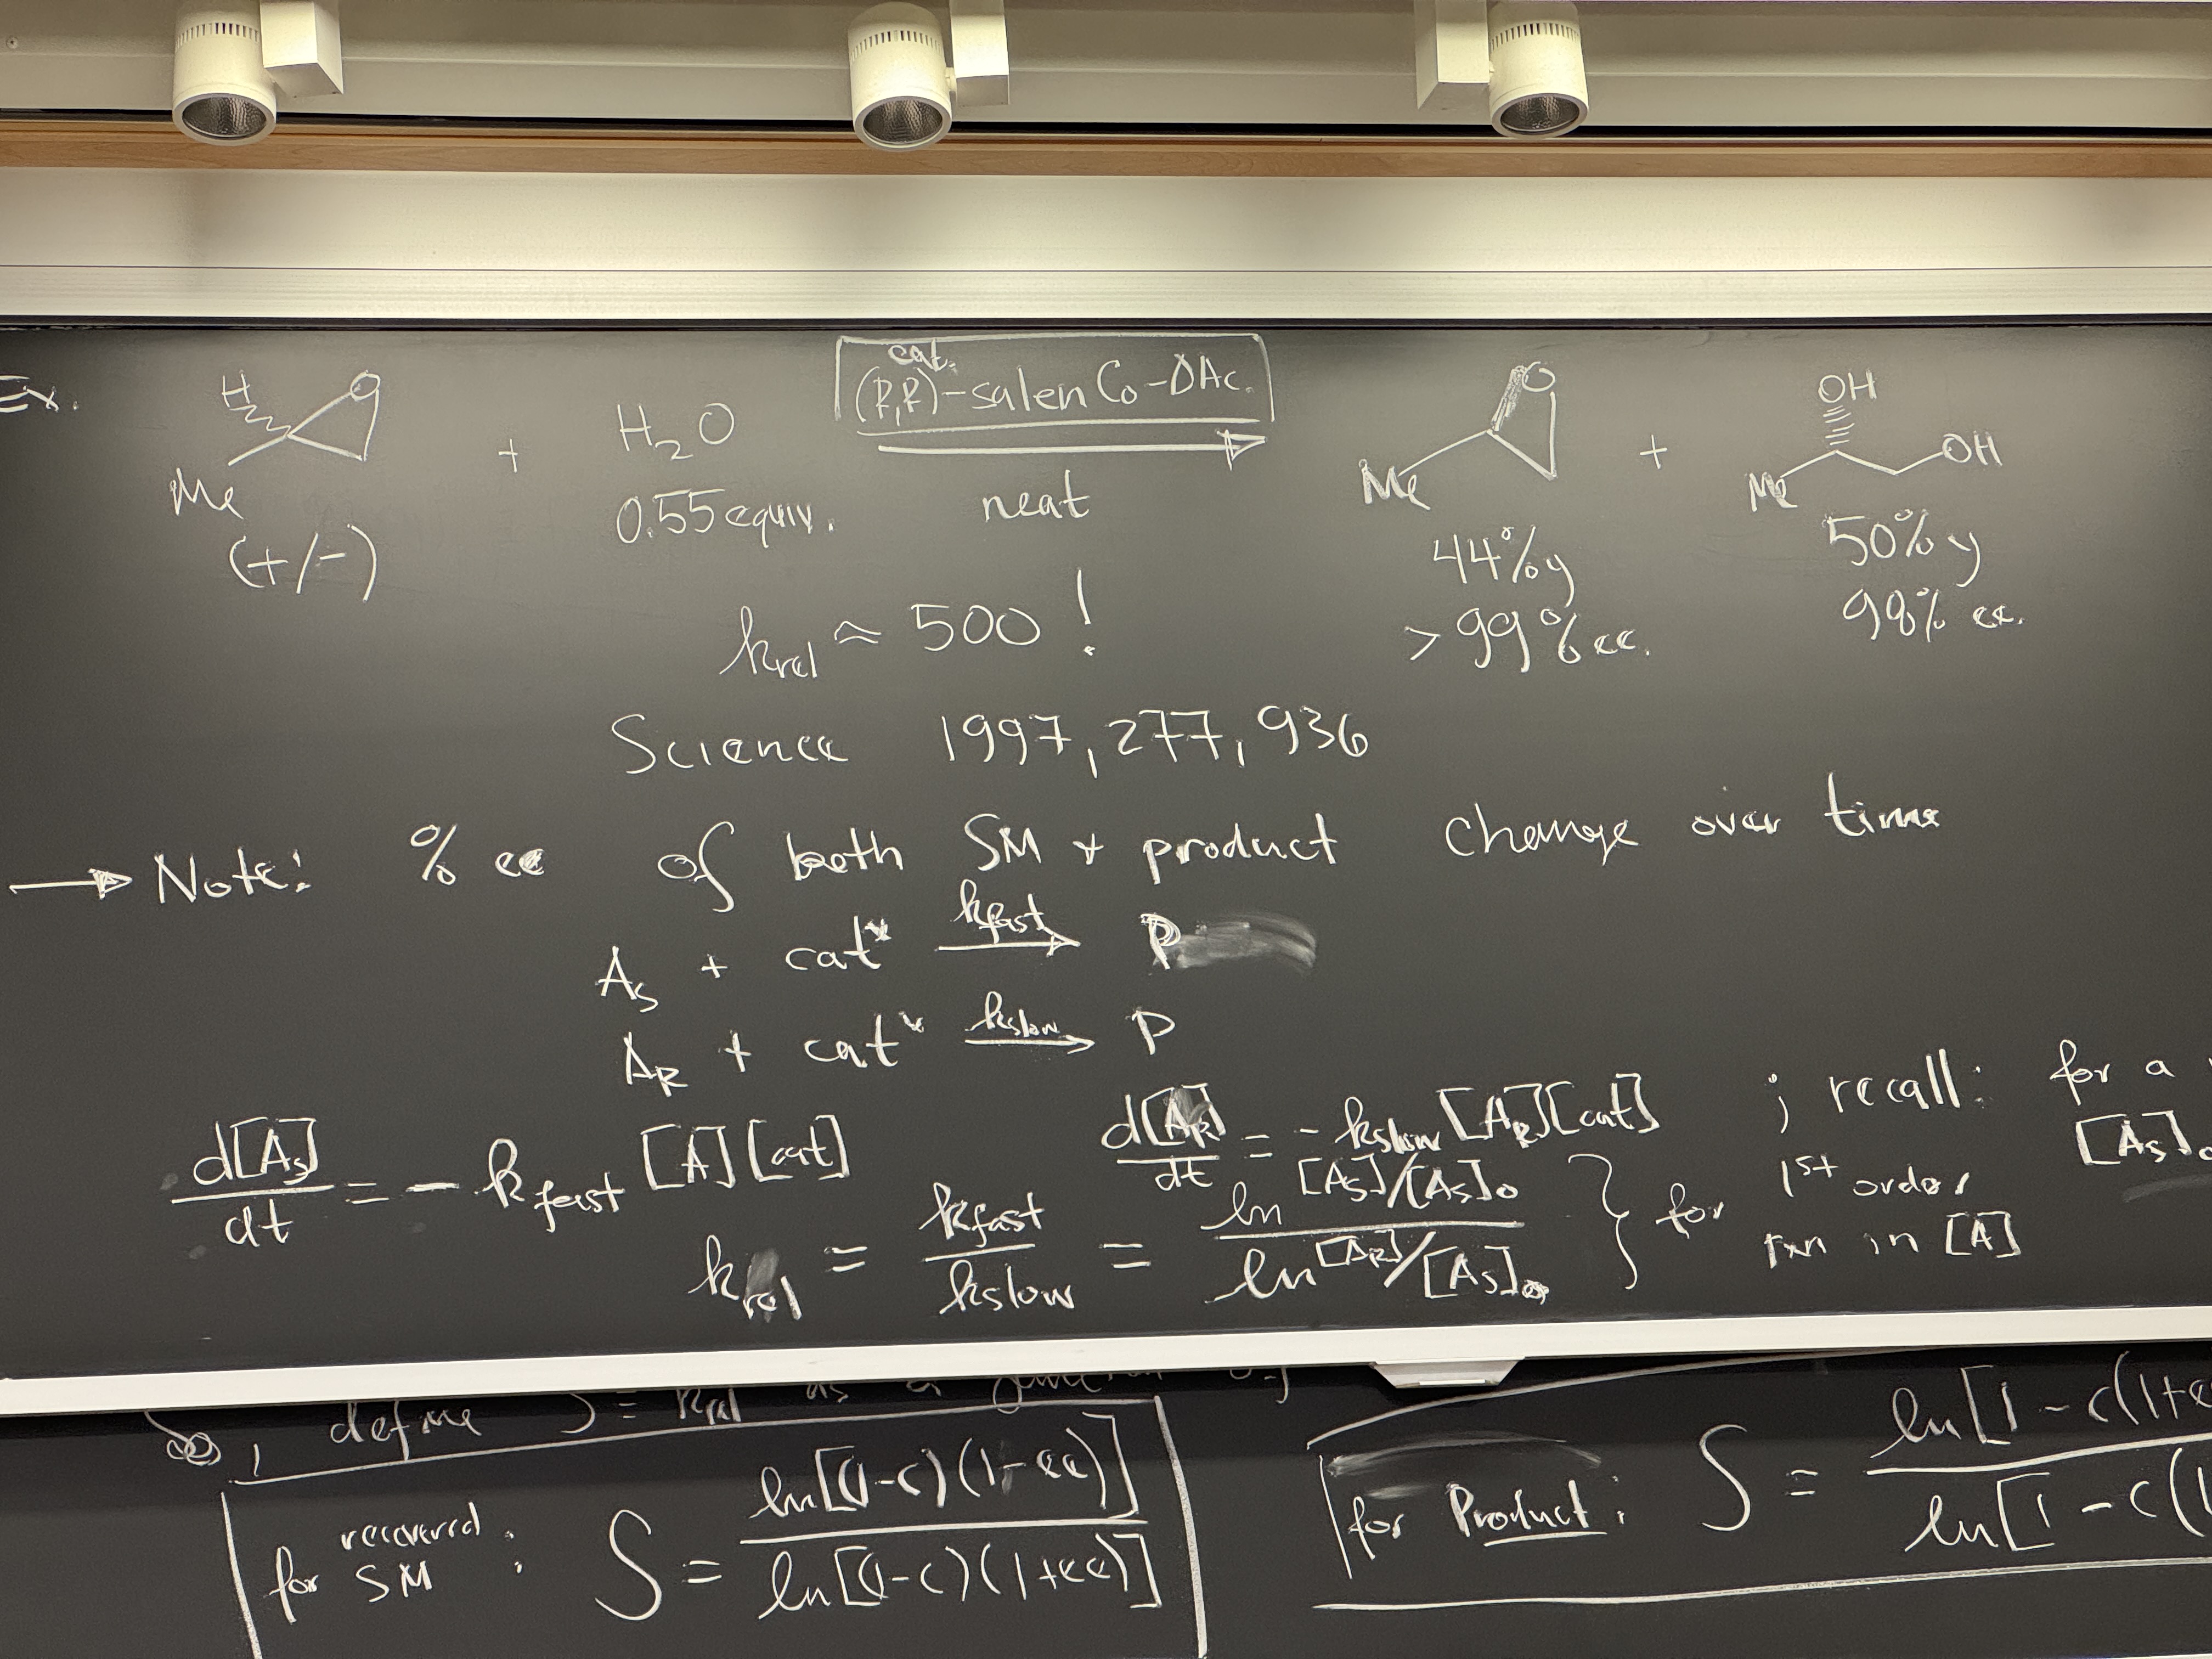 Ex.
H O Me (+/-) + H2O 0.55 equiv.
cat.
(R,R)-salen Co-OAc.
neat
O Me 44% y >99% ee. + OH Me OH 50% y 98% ee.
krel ≈ 500 !
Science 1997, 277, 936
→ Note: % ee of both SM + product change over time
As + cat* kfast → P
AR + cat* kslow → P
d[As]/dt = - kfast [A][cat] d[AR]/dt = - kslow [AR][cat] ; recall: for a
[As]o
krel = kfast/kslow = ln [As]/[As]o / ln [AR]/[As]o } for 1st order rxn in [A]
define S = krel as a function of
for recovered SM: S = ln[(1-c)(1-ee)] / ln[(1-c)(1+ee)]
for Product: S = ln[1-c(1+ee / ln[1-c(1